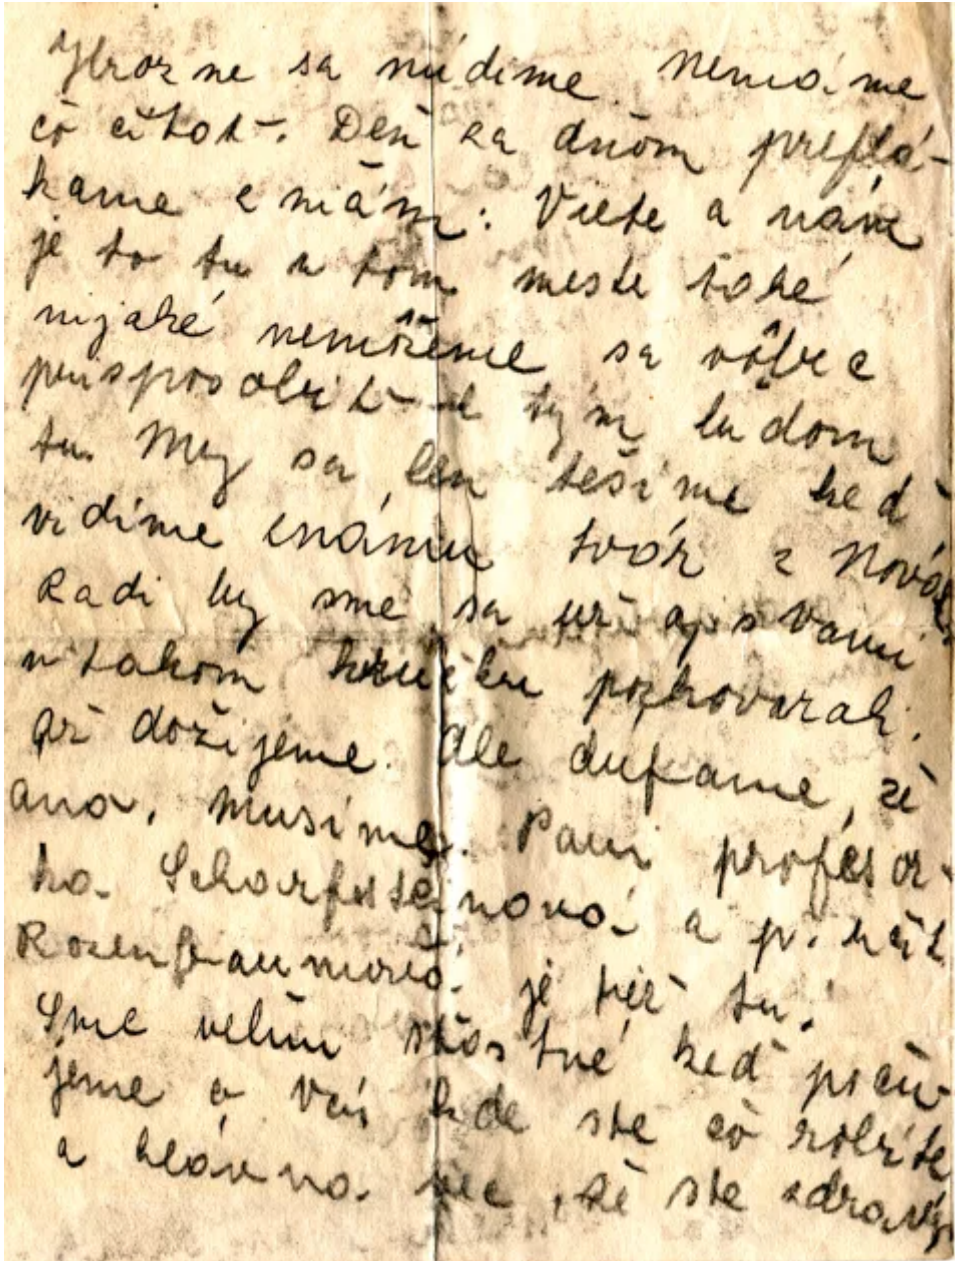 Hrozne sa nudíme. Nemáme
čo čítat. Deň za dňom preflá-
kame s mám: Viete a nám
je to tu v tom meste také
nijaké nemôžeme sa vôbec
prispôsobiť k tým ludom
tu. My sa len tešíme keď
vidíme známu tvár z
Radi by sme sa už aj s Vami
v takom krúžku pozhovarali.
až dožijeme. Ale dufame, že
ano, musíme. Pani profesor-
ka Scharfsteinová a p.
je tiež tu!
Sme velmi štastné keď poču-
jeme o Vás kde ste čo robíte
a hlavna vec, že ste zdravý,